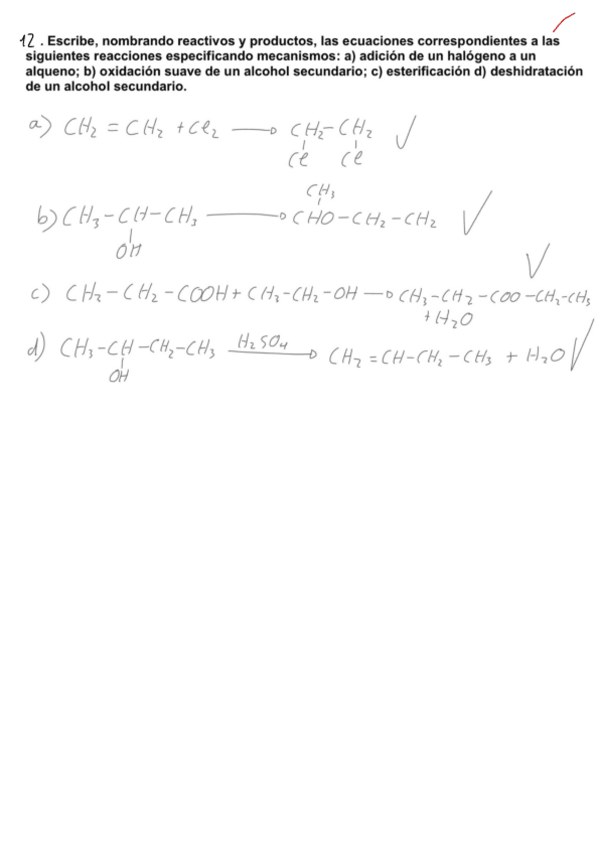 12. Escribe, nombrando reactivos y productos, las ecuaciones correspondientes a las
siguientes reacciones especificando mecanismos: a) adición de un halógeno a un
alqueno; b) oxidación suave de un alcohol secundario; c) esterificación d) deshidratación
de un alcohol secundario.
a) CH₂ = CH₂ + Cl₂ ⟶ CH₂-CH₂
Cl Cl
CH₃
b) CH₃-CH-CH₃ ⟶ CHO-CH₂-CH₂
OH
c) CH₃-CH₂-COOH + CH₃-CH₂-OH ⟶ CH₃-CH₂-COO-CH₂-CH₃
+ H₂O
d) CH₃-CH-CH₂-CH₃ H₂SO₄ ⟶ CH₂=CH-CH₂-CH₃ + H₂O
OH